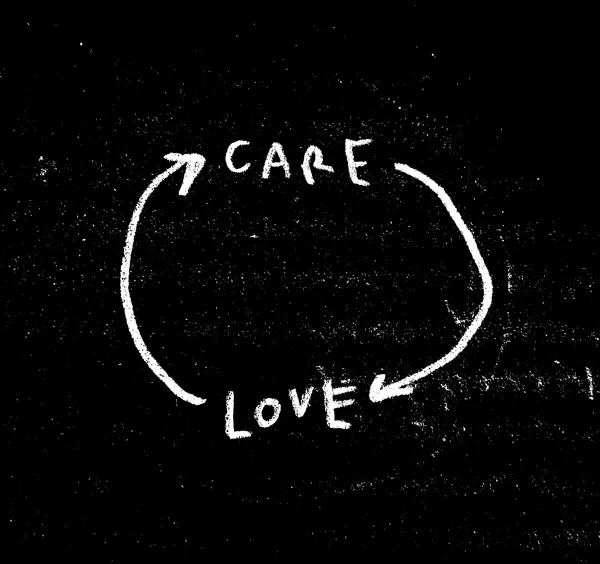 CARE
LOVE